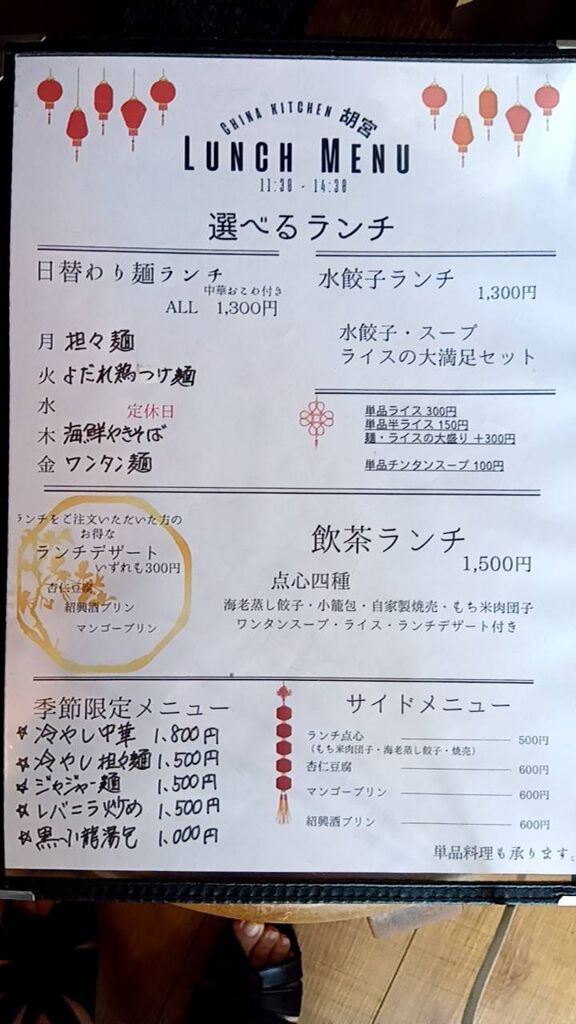 CHINA KITCHEN 胡宮
LUNCH MENU
11:30 - 14:30
選べるランチ
日替わり麺ランチ
中華おこわ付き
ALL 1,300円
月 担々麺
火 よだれ鶏つけ麺
水 定休日
木 海鮮やきそば
金 ワンタン麺
水餃子ランチ
1,300円
水餃子・スープ
ライスの大満足セット
単品ライス 300円
単品半ライス 150円
麺・ライスの大盛り +300円
単品チンタンスープ 100円
ランチをご注文いただいた方の
お得な
ランチデザート
いずれも300円
杏仁豆腐
紹興酒プリン
マンゴープリン
飲茶ランチ
1,500円
点心四種
海老蒸し餃子・小籠包・自家製焼売・もち米肉団子
ワンタンスープ・ライス・ランチデザート付き
季節限定メニュー
☆冷やし中華 1,800円
☆冷やし担々麺 1,500円
☆ジャジャー麺 1,500円
☆レバニラ炒め 1,500円
☆黒小龍湯包 1,000円
サイドメニュー
ランチ点心 500円
(もち米肉団子・海老蒸し餃子・焼売)
杏仁豆腐 600円
マンゴープリン 600円
紹興酒プリン 600円
単品料理も承ります。